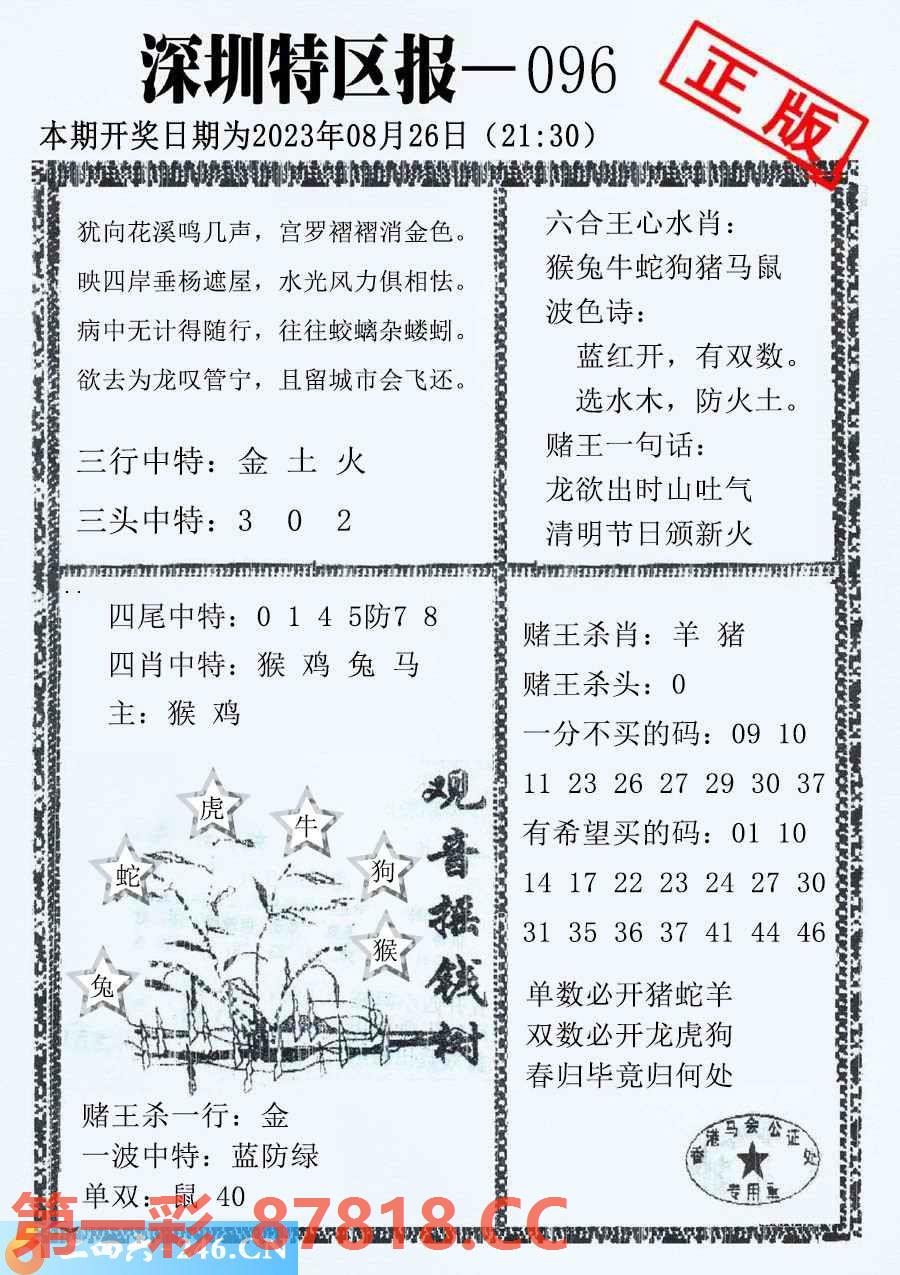 深圳特区报—096
正版
本期开奖日期为2023年08月26日（21:30）
犹向花溪鸣几声，宫罗褶褶消金色。
映四岸垂杨遮屋，水光风力俱相怯。
病中无计得随行，往往蛟螭杂蝼蚓。
欲去为龙叹管宁，且留城市会飞还。
三行中特：金 土 火
三头中特：3 0 2
六合王心水肖：
猴兔牛蛇狗猪马鼠
波色诗：
蓝红开，有双数。
选水木，防火土。
赌王一句话：
龙欲出时山吐气
清明节日颁新火
四尾中特：0 1 4 5防7 8
四肖中特：猴 鸡 兔 马
主：猴 鸡
观音摇钱树
虎
牛
蛇
狗
猴
兔
赌王杀一行：金
一波中特：蓝防绿
单双：鼠 40
赌王杀肖：羊 猪
赌王杀头：0
一分不买的码：09 10
11 23 26 27 29 30 37
有希望买的码：01 10
14 17 22 23 24 27 30
31 35 36 37 41 44 46
单数必开猪蛇羊
双数必开龙虎狗
春归毕竟归何处
香港马会公证处
专用章
第一彩 87818.CC
246.CN